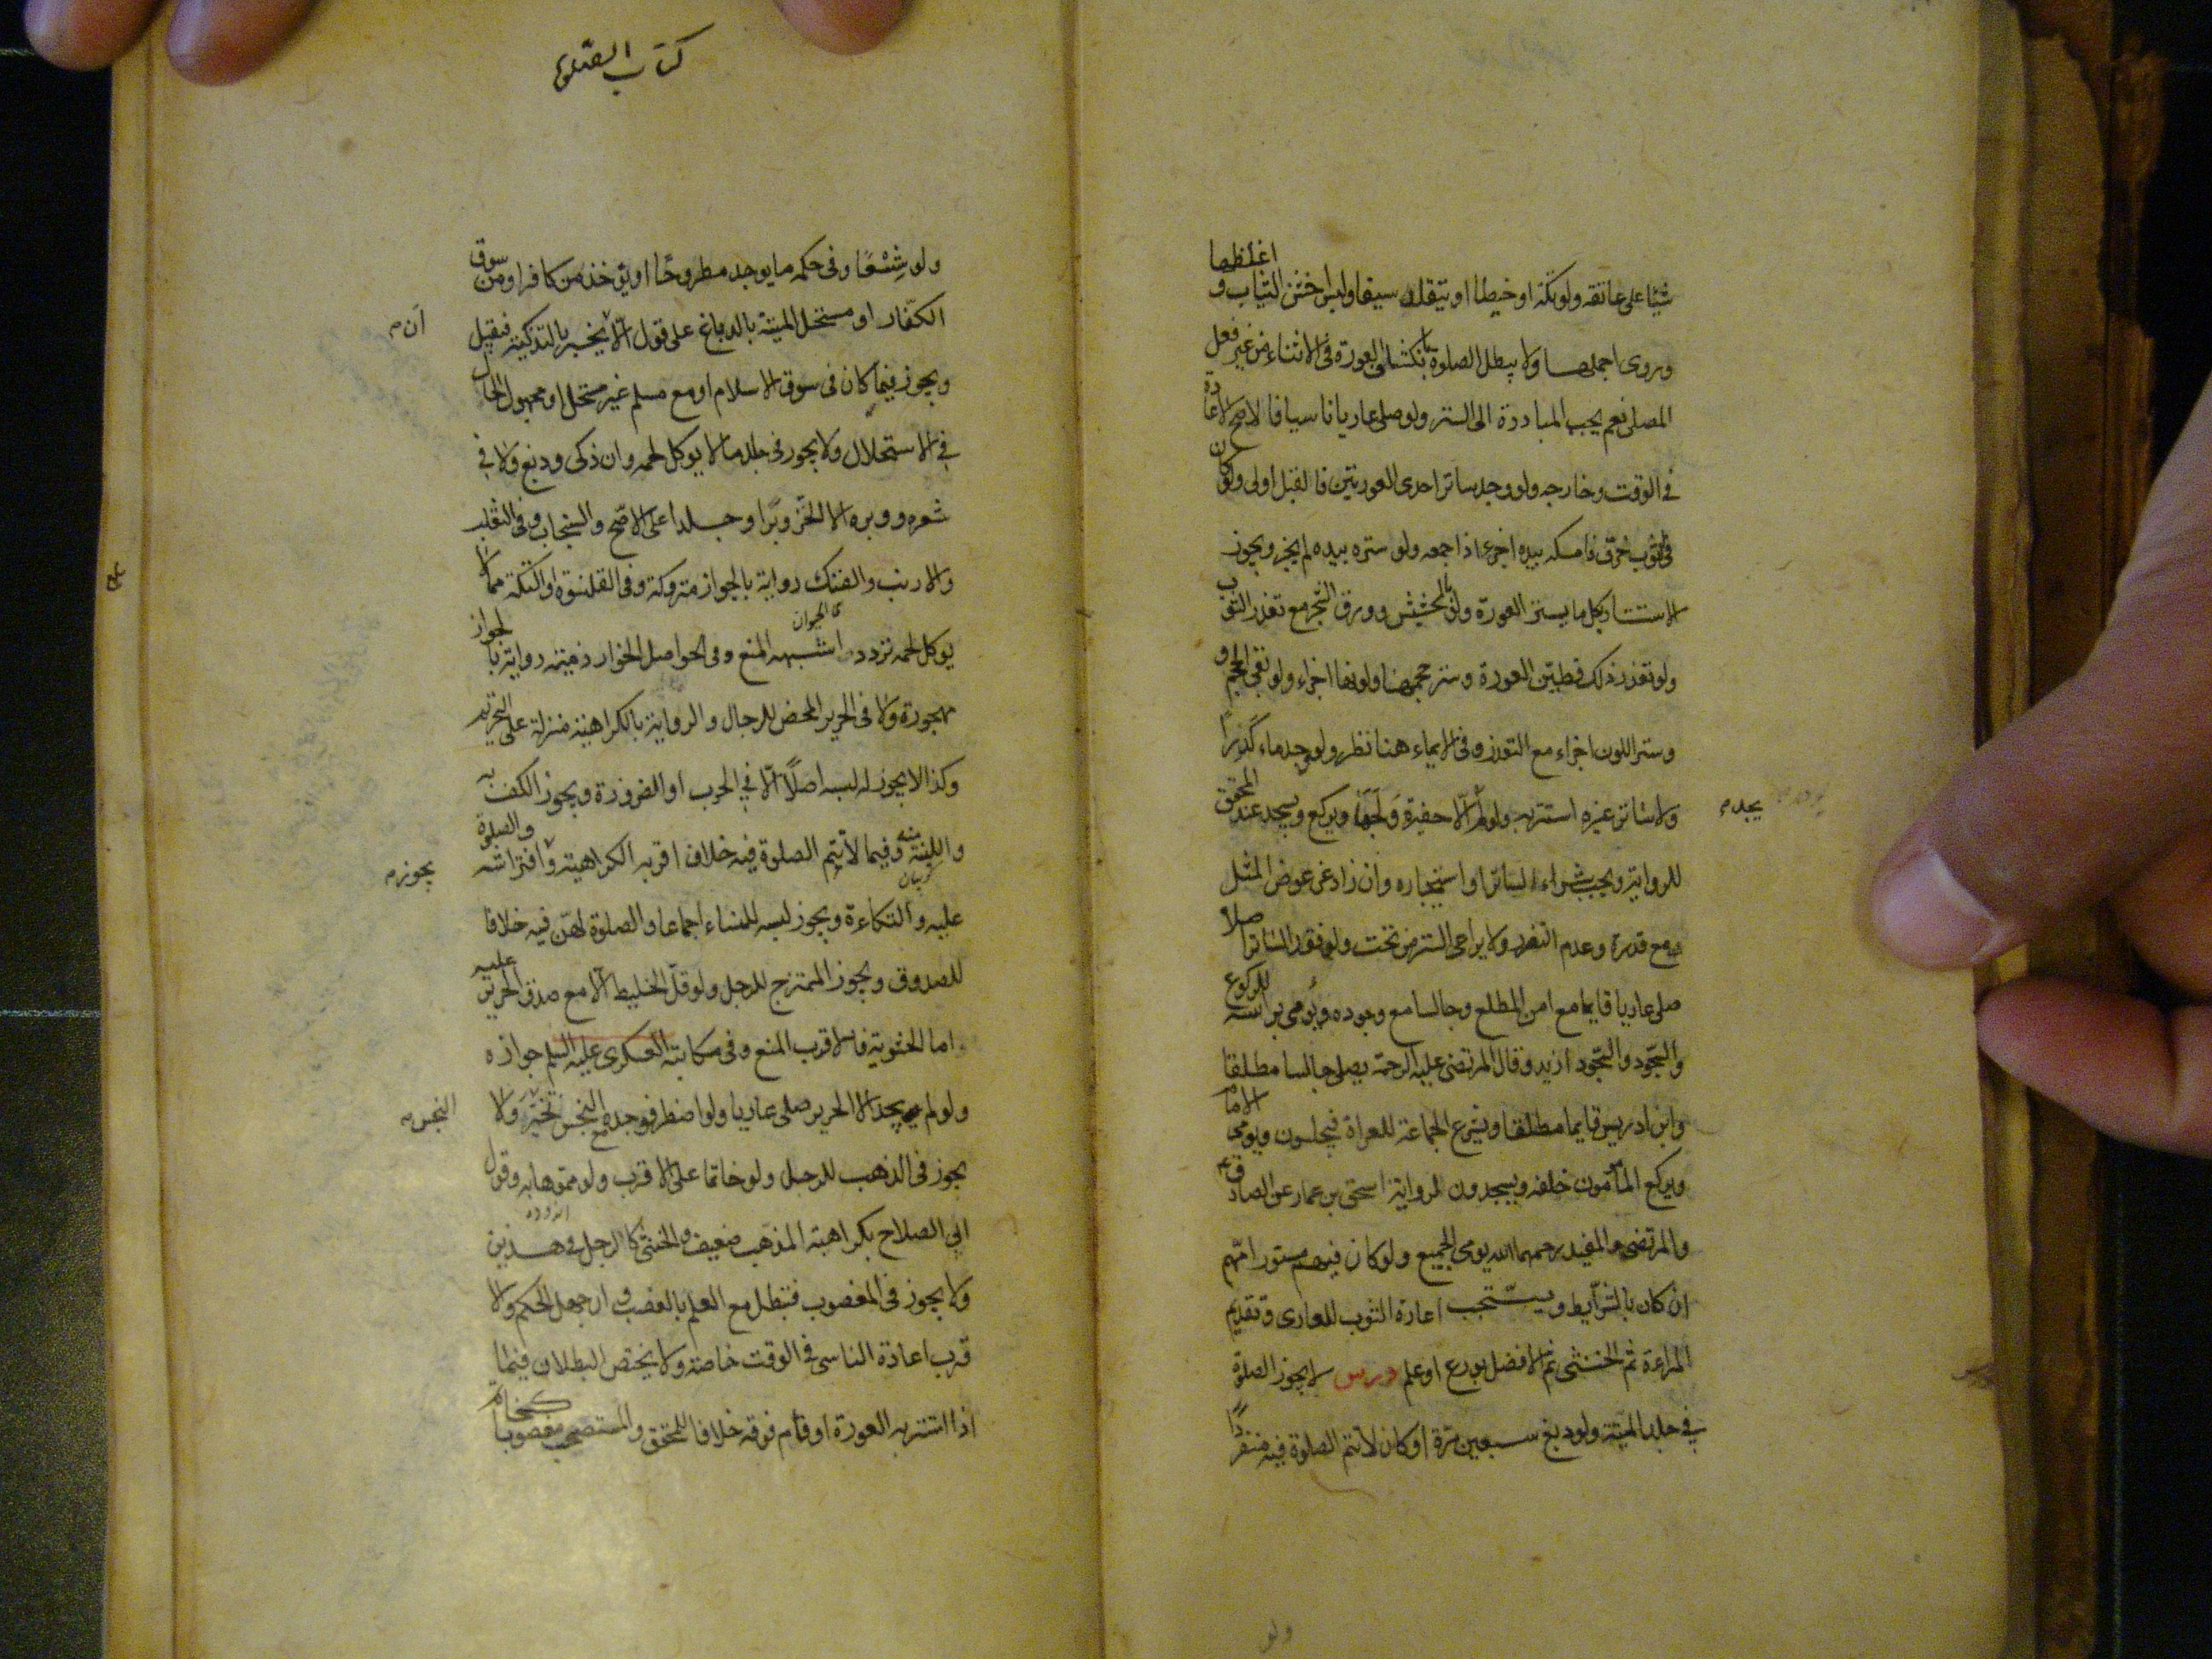 شيئا على عاتقه ولو تكة او خيطا او يتقلد سيفا ولبس اخشن الثياب و اغلظها
وروى اجملها ولا يبطل الصلوة بانكشاف العورة فى الاثناء من غير فعل
المصلى نعم يجب المبادرة الى الستر ولو صلى عاريا ناسيا فالاصح الاعادة
فى الوقت وخارجه ولو وجد ساتر احدى العورتين فالقبل اولى ولو كان
فى الثوب خرق فامسكه بيده اجزء اذا جمعه ولو ستره بيده لم يجز ويجوز
الاستتار بكل ما يستر العورة ولو بالحشيش وورق الشجر مع تعذر الثوب
ولو تعذر ذلك فطين العورة وستر حجمها ولونها اجزاء ولو نفى الحجم و
وستر اللون اجزاء مع التعذر وفى الايماء هنا نظر ولو وجد ماء كدرا
ولا ساتر غيره استتر به ولو لم الّا حفيرة ولجها ويركع ويسجد عند المحقق
يجد م
للرواية ويجب شراء الساتر او استيجاره وان زاد عن عوض المثل
مع قدرة وعدم التضرر ولا يراعى الستر من تحت ولو فقد الساتر اصلا
صلى عاريا قايما مع امن المطلع وجالسا مع وجوده ويومى براسه للركوع
والسجود والسجود ازيد وقال المرتضى عليه الرحمة يصلى جالسا مطلقا
وابن ادريس قايما مطلقا ويشرع الجماعة للعراة فيجلسون ويومى الامام
ويركع المأمون خلفه ويسجدون لرواية اسحق بن عمار عن الصادق ع
والمرتضى والمفيد رحمهما الله يومى الجميع ولو كان فيهم مستور امّهم
ان كان بالشرايط ويستحب اعارة الثوب للعارى وتقديم
المراءة ثم الخنثى ثم الافضل بورع او علم درس لا يجوز الصلوة
فى جلد الميتة ولو دبغ سبعين مرة او كان لا تتم الصلوة فيه منفردا
ولو
كتاب الصلوة
ولو شسعا وفى حكمه ما يوجد مطروحا او يؤخذ من كافر او من سوق
الكفار او مستحل الميتة بالدباغ على قول الّا يخبر بالتذكية فيقبل
ان م
ويجوز فيما كان فى سوق الاسلام او مع مسلم غير مستحل او مجهول الحال
فى الاستحلال ولا يجوز فى جلد ما لا يوكل لحمه وان ذكى ودبغ ولا فى
شعره ووبره الا الخز وبرا وجلدا على الاصح والسنجاب وفى الثعلب
والارنب والفنك رواية بالجواز متروكة وفى القلنسوة او التكة مما لا
يوكل لحمه تردد اشبهه المنع وفى الحواصل الخوارزمية رواية بالجواز
مهجورة ولا فى الحرير المحض للرجال والرواية بالكراهية منزلة على التحريم
وكذا لا يجوز له لبسه اصلا الّا فى الحرب او الضرورة ويجوز الكف به
واللبنة منه وفيما لا تتم الصلوة فيه خلاف اقربه الكراهية وافتراشه والصلوة
يجوز م
عليه والتكاءة ويجوز لبسه للنساء اجماعا والصلوة لهن فيه خلافا
للصدوق ويجوز الممتزج للرجل ولو قل الخليط الّا مع صدق الحرير عليه
اما الحشوية فالاقرب المنع وفى مكاتبة العسكرى عليه السلم جوازه
ولو لم يجد الا الحرير صلى عاريا ولو اضطر فوجده مع النجس تخير ولا
النجس م
يجوز فى الذهب للرجل ولو خاتما على الاقرب ولو مموها به وقول
ابى الصلاح بكراهية المذهب ضعيف والخنثى كالرجل فى هذين
ولا يجوز فى المغصوب فتبطل مع العلم بالغصب وان جهل الحكم ولا
قرب اعادة الناسى فى الوقت خاصة ولا يختص البطلان فيما
اذا استتر به العورة او قام فوقه خلافا للمحقق والمستصحب مغصوبا كخاتم